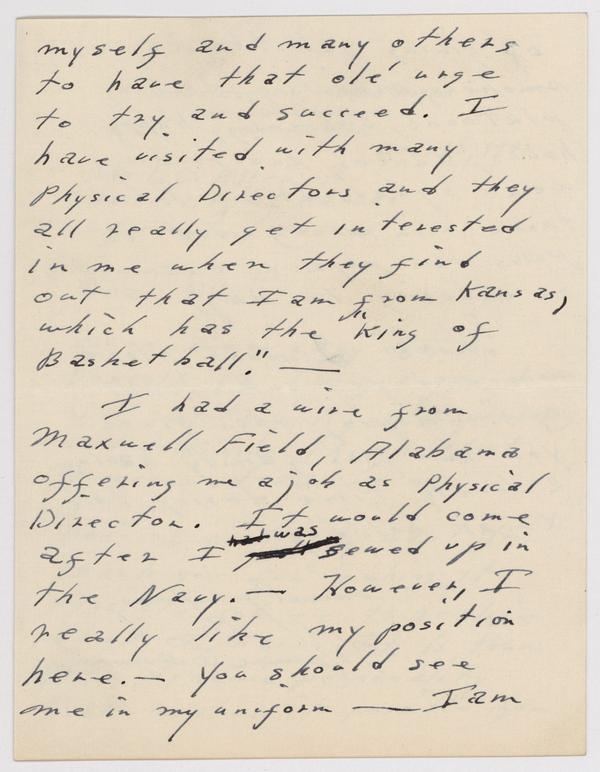 myself and many others
to have that ole' urge
to try and succeed. I
have visited with many
Physical Directors and they
all really get interested
in me when they find
out that I am from Kansas,
which has the "King of
Basketball." —
I had a wire from
Maxwell Field, Alabama
offering me a job as Physical
Director. It would come
after I was sewed up in
the Navy. — However, I
really like my position
here. — You should see
me in my uniform — I am